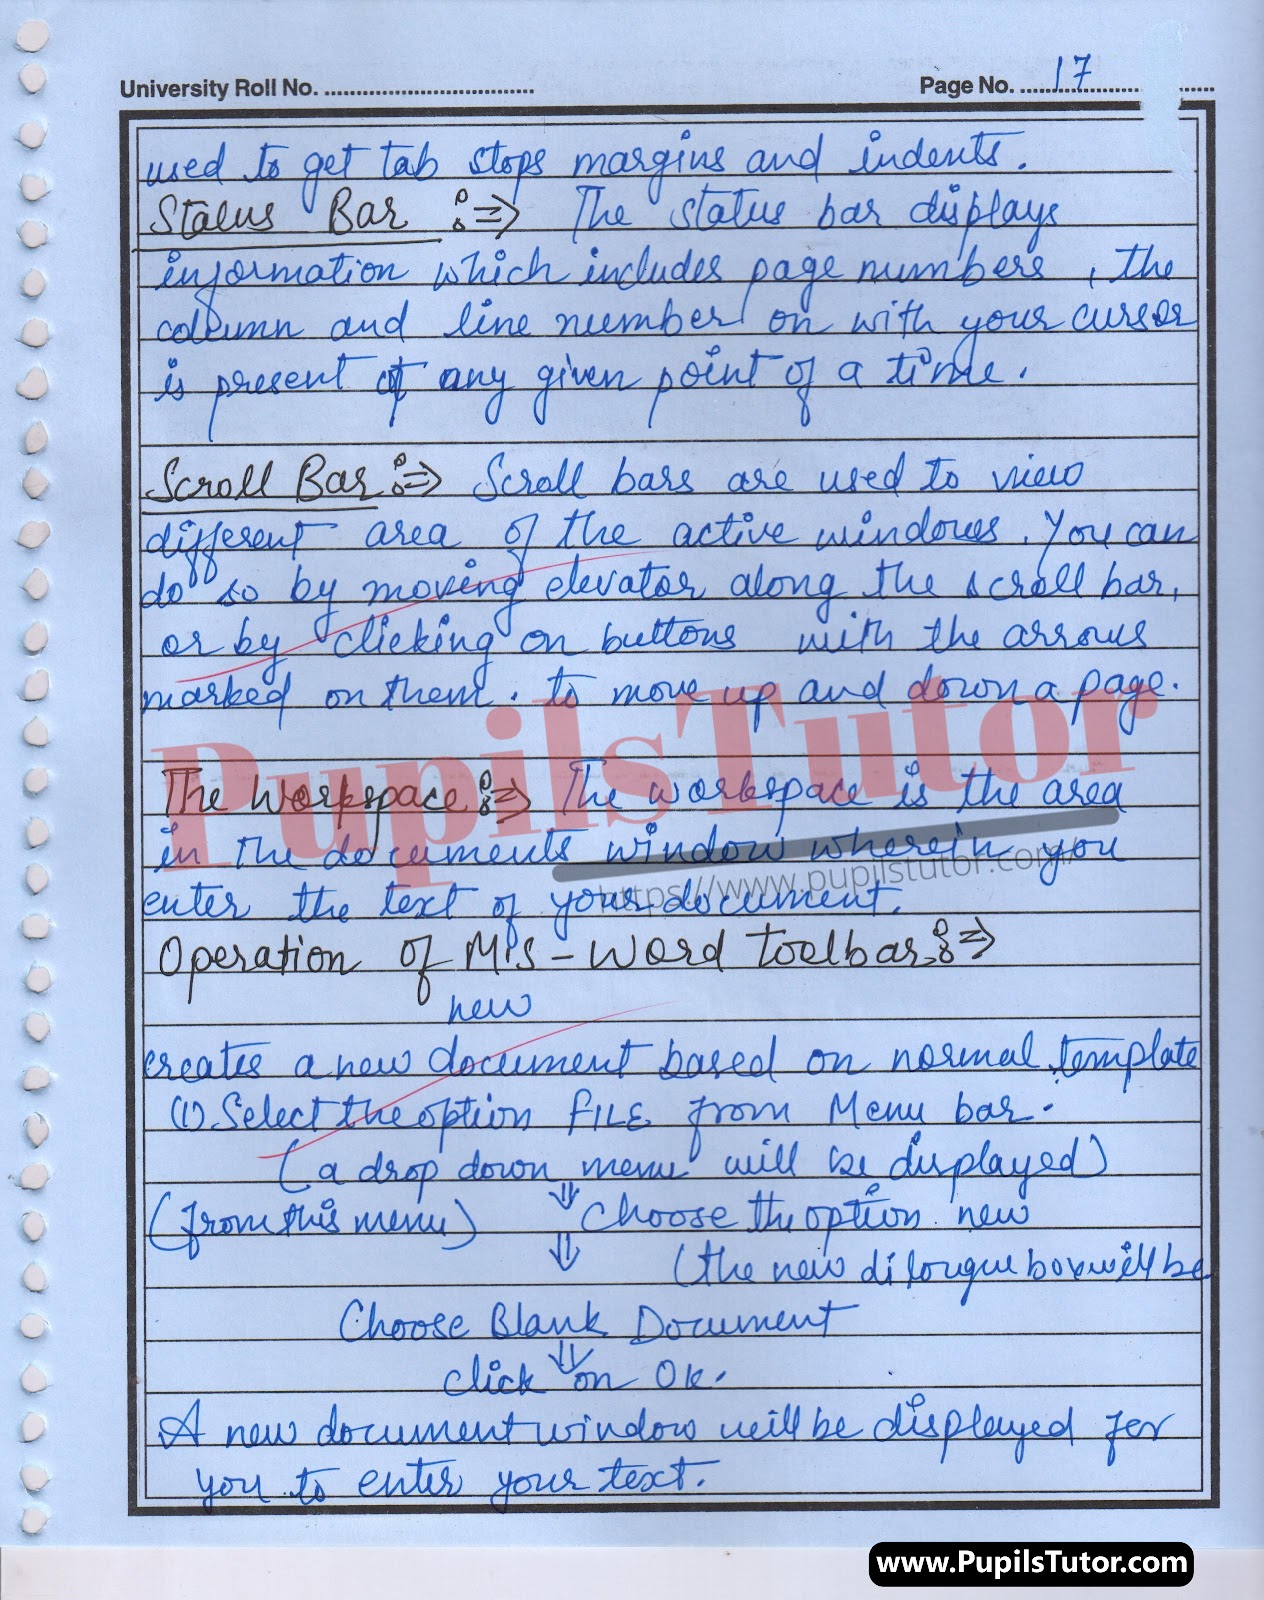 University Roll No. ....................................
Page No. ...17...
used to get tab stops margins and indents.
Status Bar :⇒ The status bar displays
information which includes page numbers, the
column and line number on with your cursor
is present at any given point of a time.
Scroll Bar :⇒ Scroll bars are used to view
different area of the active windows. You can
do so by moving elevator along the scroll bar,
or by clicking on buttons with the arrows
marked on them. to move up and down a page.
PupilsTutor
The Workspace :⇒ The workspace is the area
in the documents window wherein you
https://www.pupilstutor.com/
enter the text of your document.
Operation of M.S-Word toolbar :⇒
new
creates a new document based on normal template
(1) Select the option FILE from Menu bar.
(a drop down menu will be displayed)
(from this menu) ⇓ Choose the option new
⇓ (the new dilongue box will be
Choose Blank Document
⇓
click on OK.
A new document window will be displayed for
you to enter your text.
www.PupilsTutor.com